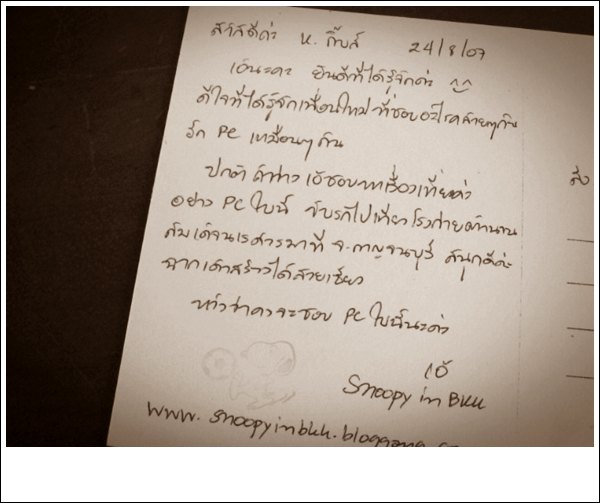 สวัสดีค่ะ น. กิ๊บส์ 24/8/07
เอ้นะคะ ยินดีที่ได้รู้จักค่ะ ^^
ดีใจที่ได้รู้จักเพื่อนใหม่ ที่ชอบอะไรคล้ายๆกัน
รัก PC เหมือนๆกัน
ปกติ เอ้ชอบหาเรื่องเที่ยวค่ะ
อย่าง PC ใบนี้ ขับรถไปเที่ยวโรงถ่ายตำนาน
สมเด็จนเรศวรมาที่ จ.กาญจนบุรี สนุกดีค่ะ
ฉากเค้าสร้างได้สวยเชียว
หวังว่าคงจะชอบ PC ใบนี้นะคะ
เอ้
Snoopy in BKK
www.snoopyinbkk.bloggang.
ส่ง